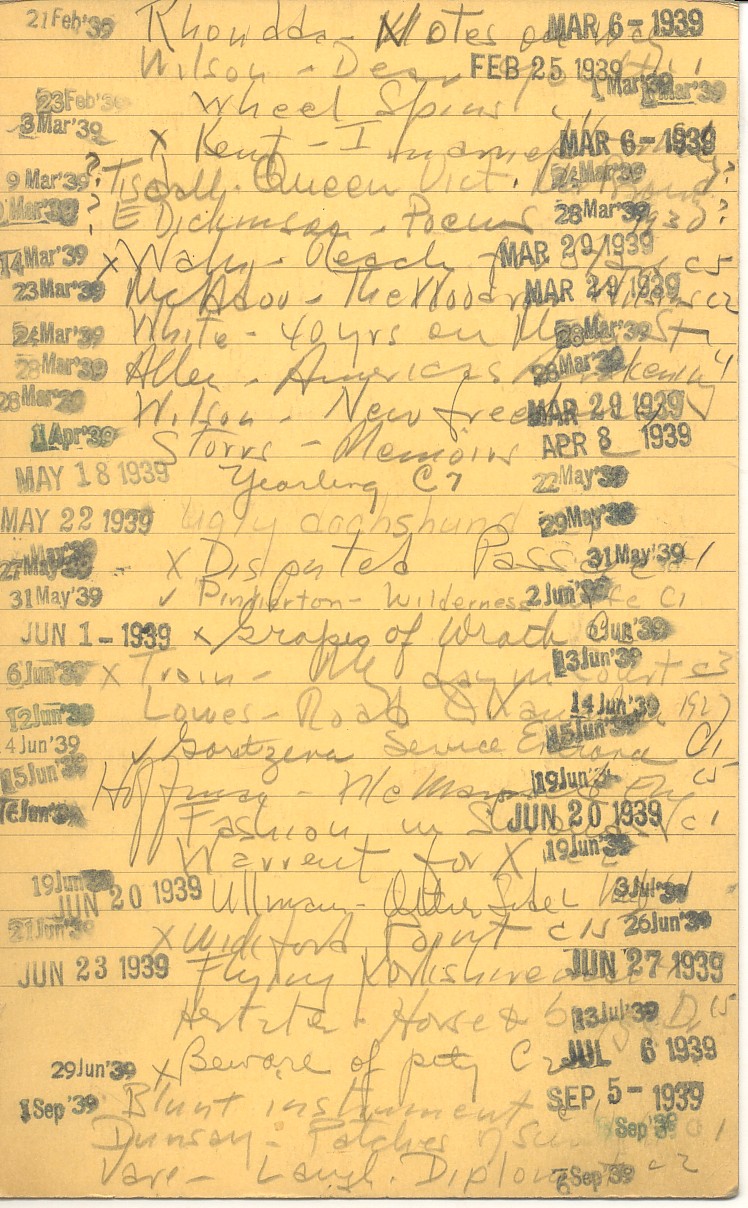 21 Feb '39 Rhondda - Notes on way MAR 6 - 1939
Wilson - Dear FEB 25 1939 1 Mar '39
23 Feb '39 Wheel Spins Mar '39
3 Mar '39 x Kent - I married MAR 6 - 1939
9 Mar '39 ? Tisdall. Queen Vict. 24 Mar '39 ?
Mar '39 ? E Dickinson - Poems 28 Mar '39 1930 ?
14 Mar '39 x MAR 29 1939 C5
23 Mar '39 McAdoo - The Woodrow Wilsons MAR 29 1939 C2
24 Mar '39 White - 40 yrs on Main St 28 Mar '39
28 Mar '39 Allen - America's Awakening 28 Mar '39 4
28 Mar '39 Wilson - New freedom MAR 29 1939
1 Apr '39 Storrs - Memoirs APR 8 1939
MAY 18 1939 Yearling C7 22 May '39
MAY 22 1939 Ugly dachshund 29 May '39
27 May '39 x Disputed Passage 31 May '39 C1
31 May '39 ✓ Pinkerton - Wilderness Wife C1 2 Jun '39
JUN 1 - 1939 x Grapes of Wrath Jun '39
6 Jun '39 x Train - My Day in Court C3 13 Jun '39
12 Jun '39 Lowes - Road to Xanadu 1927 14 Jun '39
14 Jun '39 ✓ Service Entrance C1 15 Jun '39
15 Jun '39 Hoffman - 19 Jun '39 C5
16 Jun '39 Fashion in Shrouds C1 JUN 20 1939
Warrent for X 19 Jun '39
19 Jun '39 JUN 20 1939 Ullman - Other Side 3 Jul '39
21 Jun '39 x Wickford Point C15 26 Jun '39
JUN 23 1939 Flying Yorkshireman JUN 27 1939
Hertzler - Horse & buggy Dr. C5 13 Jul '39
29 Jun '39 x Beware of pity C2 JUL 6 1939
1 Sep '39 Blunt instrument SEP 5 - 1939
Dunsany - Patches of Sun Sep '39 C1
Vare - Laugh. Diplomat C2 6 Sep '39